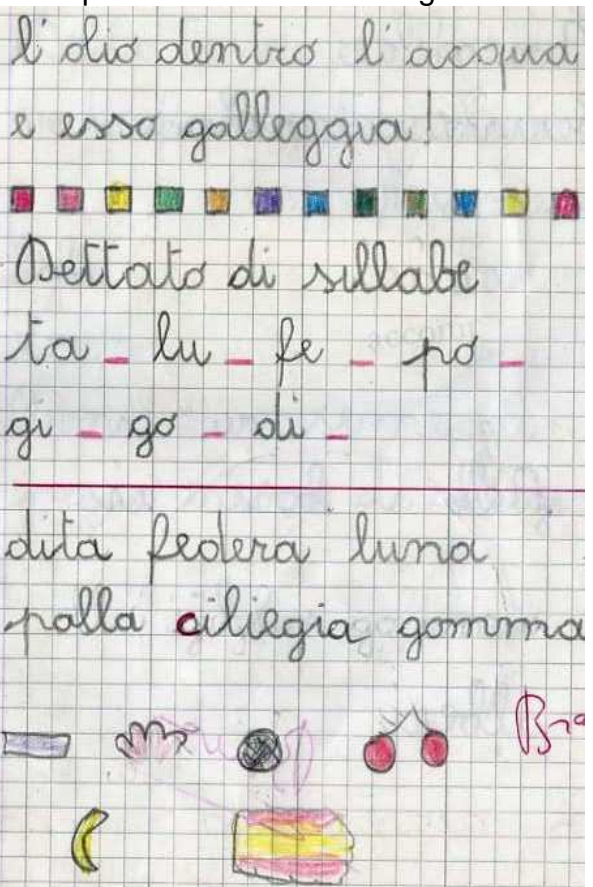 l'olio dentro l'acqua
e esso galleggia!
Dettato di sillabe
ta - lu - fe - po -
gi - go - di -
dita federa luna
palla ciliegia gomma